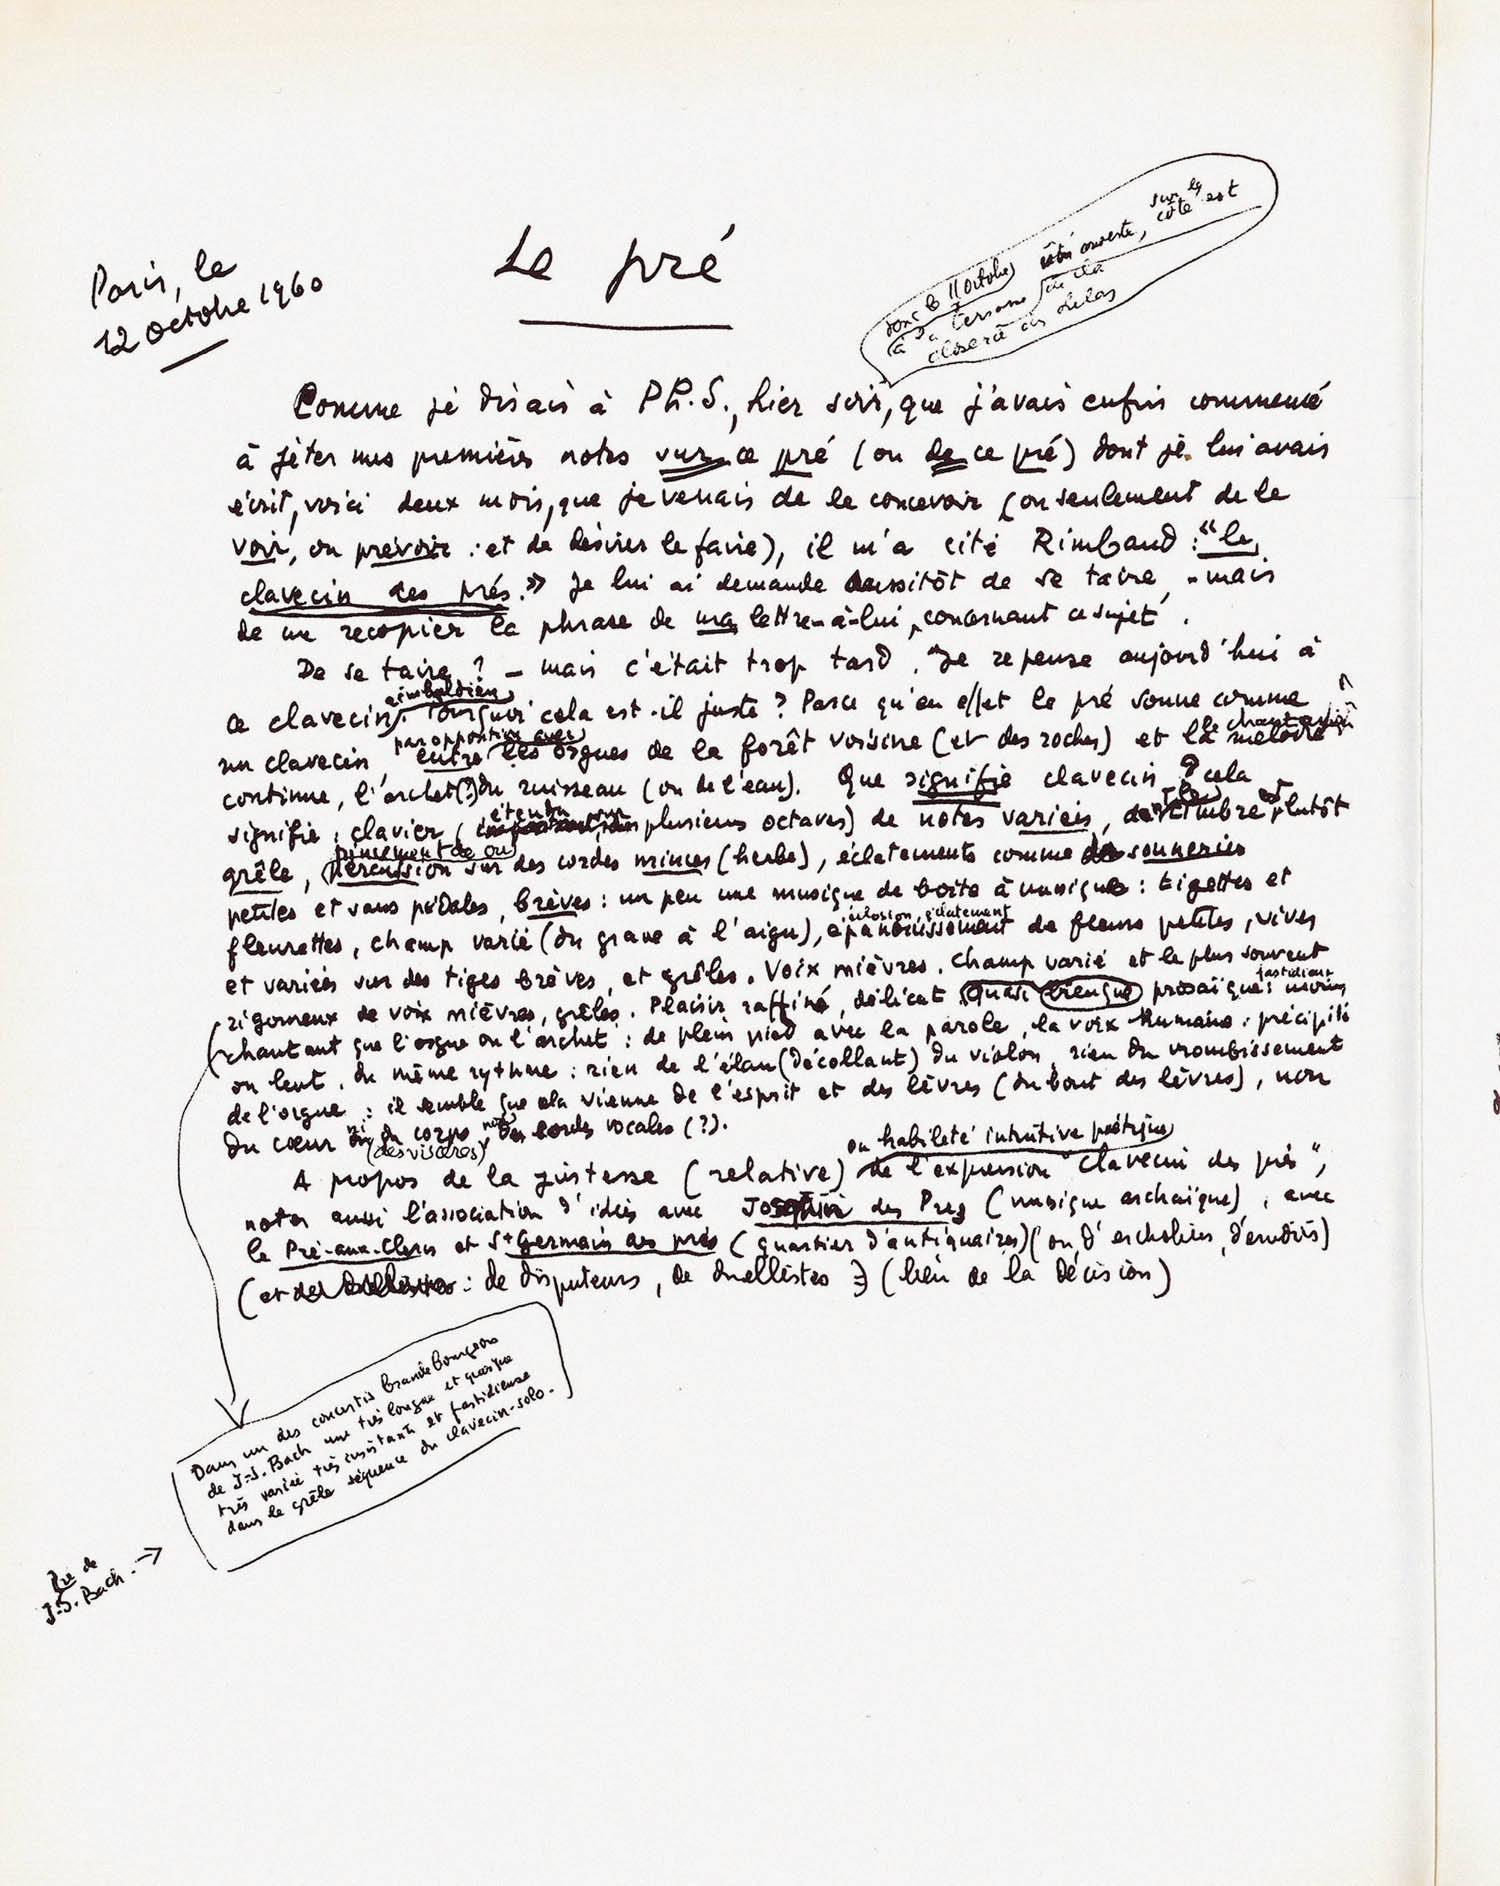 Paris, le
12 octobre 1960
Le pré
donc le 11 octobre
à la terrasse de la
closerie des Lilas
côté est
Comme je disais à Ph.S., hier soir, que j'avais enfin commencé
à jeter mes premières notes sur ce pré (ou de ce pré) dont je lui avais
écrit, voici deux mois, que je venais de le concevoir (ou seulement de le
voir, ou prévoir : et de désirer le faire), il m'a cité Rimbaud : "le
clavecin des prés." Je lui ai demandé aussitôt de se taire, - mais
de me recopier la phrase de ma lettre-à-lui, concernant ce sujet.
De se taire ? - mais c'était trop tard. Je repense aujourd'hui à
rimbaldien
ce clavecin. Pourquoi cela est-il juste ? Parce qu'en effet le pré sonne comme
par opposition avec
un clavecin, entre les orgues de la forêt voisine (et des roches) et la mélodie
continue, l'archet(?) du ruisseau (ou de l'eau). Que signifie clavecin ? cela
étendu sur
signifie : clavier ( plusieurs octaves) de notes variées, de timbre plutôt
pincement de ou
grêle, percussion sur des cordes minces (herbe), éclatements comme de sonneries
petites et sans pédales, brèves : un peu une musique de boîte à musique : tigettes et
éclosion, éclatement
fleurettes, champ varié (du grave à l'aigu), épanouissement de fleurs petites, vives
et variées sur des tiges brèves, et grêles. Voix mièvres. Champ varié et le plus souvent
fastidieux
rigoureux de voix mièvres, grêles. Plaisir raffiné, délicat, quasi prosaïque : moins
chantant que l'orgue ou l'archet : de plein pied avec la parole, la voix humaine : précipité
ou lent, du même rythme : rien de l'élan (décollant) du violon, rien du vrombissement
de l'orgue : il semble que cela vienne de l'esprit et des lèvres (du bout des lèvres), non
du cœur ni du corps (des viscères) non des cordes vocales (?).
ou habileté intuitive poétique
A propos de la justesse (relative) de l'expression "clavecin des prés",
noter aussi l'association d'idées avec Josquin des Prés (musique archaïque), avec
le Pré-aux-Clercs et St Germain des prés (quartier d'antiquaires) (ou d'escholiers, d'érudits)
(et de duellistes : de disputeurs, de duellistes) (lieu de la décision)
Dans un des concertis brandebourgeois
de J-S. Bach une très longue et quoique
très variée très insistante et fastidieuse
dans le grêle séquence du clavecin-solo.
J-S. Bach. →